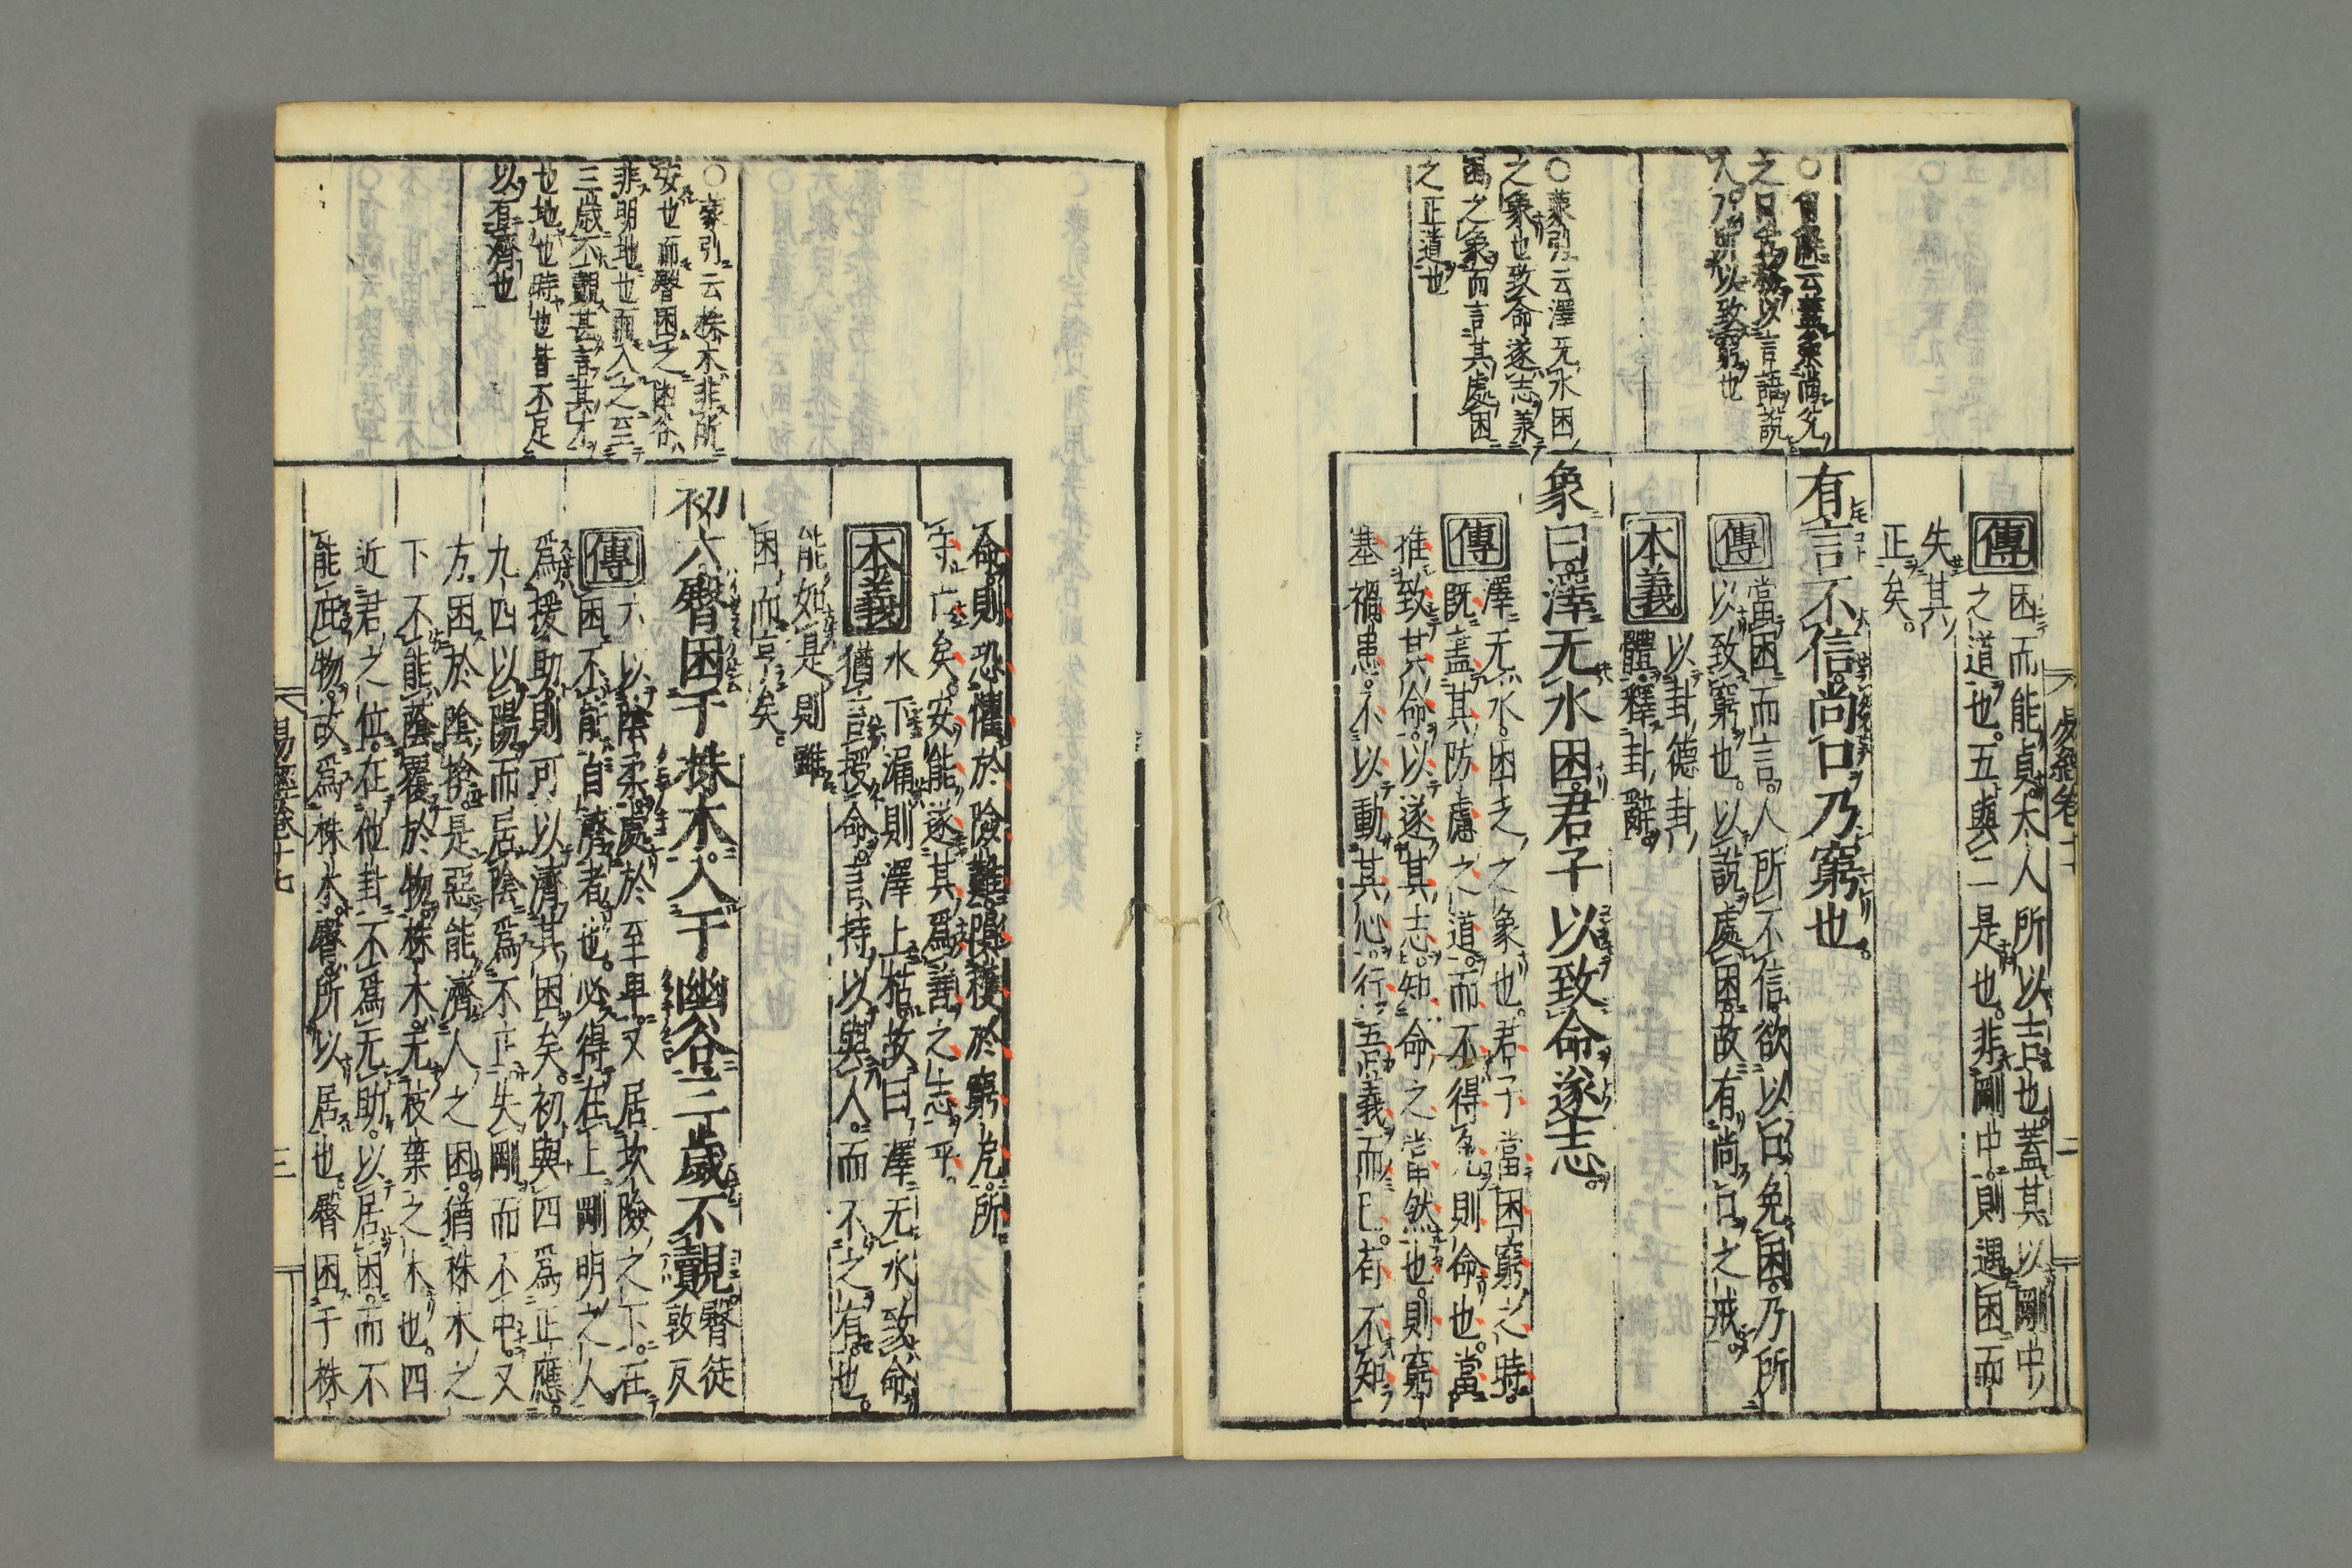 傳困而能貞大人所以吉也。蓋其以剛中
之道也。五與二是也。非剛中。則遇困而
失其
正矣。
有言不信尚口乃窮也。
傳當困而言。人所不信。欲以口免困。乃所
以致窮也。以說處困。故有尚口之戒。
本義以卦德卦
體釋卦辭。
象曰澤无水困。君子以致命遂志。
傳澤无水。困乏之象也。君子當困窮之時。
既盡其防慮之道。而不得免則命也。當
推致其命。以遂其志。知命之當然也。則窮
塞禍患。不以動其心。行吾義而已。苟不知
○蒙引云澤无水困
之象也致命遂志蒙
困之象而言其處困
之正道也
命。則恐懼於險難。隕穫於窮戹。所
守亡矣。安能遂其爲善之志乎。
本義水下漏則澤上枯。故曰澤无水。致命
猶言授命。言持以與人。而不之有也。
能如是。則雖
困而亨矣。
初六臀困于株木。入于幽谷。三歲不覿。臀徒
敦反
傳六以陰柔處於至卑。又居坎險之下。在
困不能自濟者也。必得在上剛明之人
爲援助。則可以濟其困矣。初與四爲正應。
九四以陽而居陰爲不正。失剛而不中。又
方困於陰揜。是惡能濟人之困。猶株木之
下不能蔭覆於物。株木。无枝葉之木也。四
近君之位。在他卦不爲无助。以居困而不
能庇物。故爲株木。臀。所以居也。臀困于株
○蒙引云株木非所
安也而臀困之幽谷
非明地也而入之至
三歲不覿甚言其才
也地也時也皆不足
以有濟也
易經卷十七
三